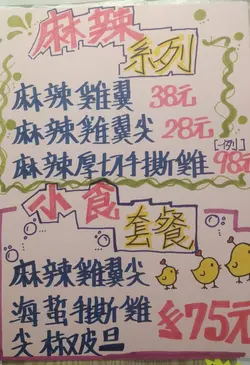 麻辣
系列
麻辣雞翼 38元
麻辣雞翼尖 28元
[一例]
麻辣厚切手撕雞 98元
小食
套餐
麻辣雞翼尖
海蜇手撕雞
尖椒皮旦
75元